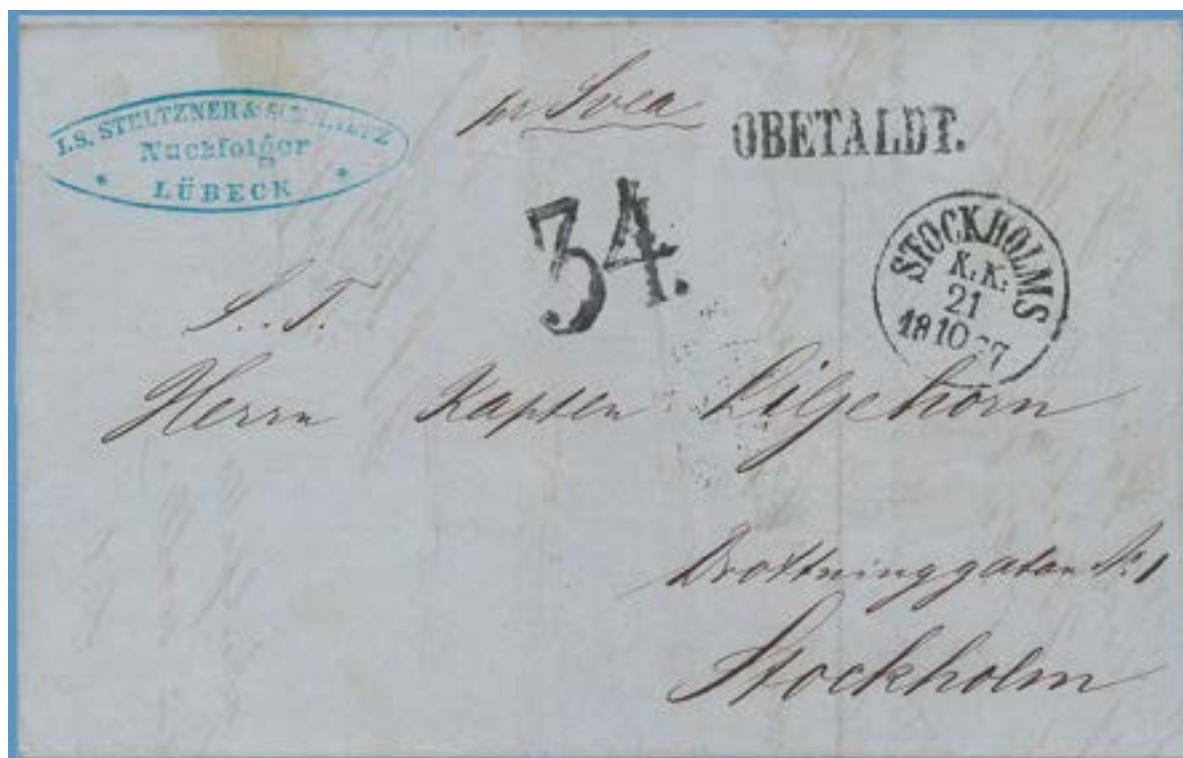 I.S. STELTZNER &
Nachfolger
LÜBECK
pr Svea
OBETALDT.
34.
STOCKHOLMS
K.K:
21
18 10 7
S. T.
Herrn Kapten Liljehorn
Drottninggatan № 1
Stockholm